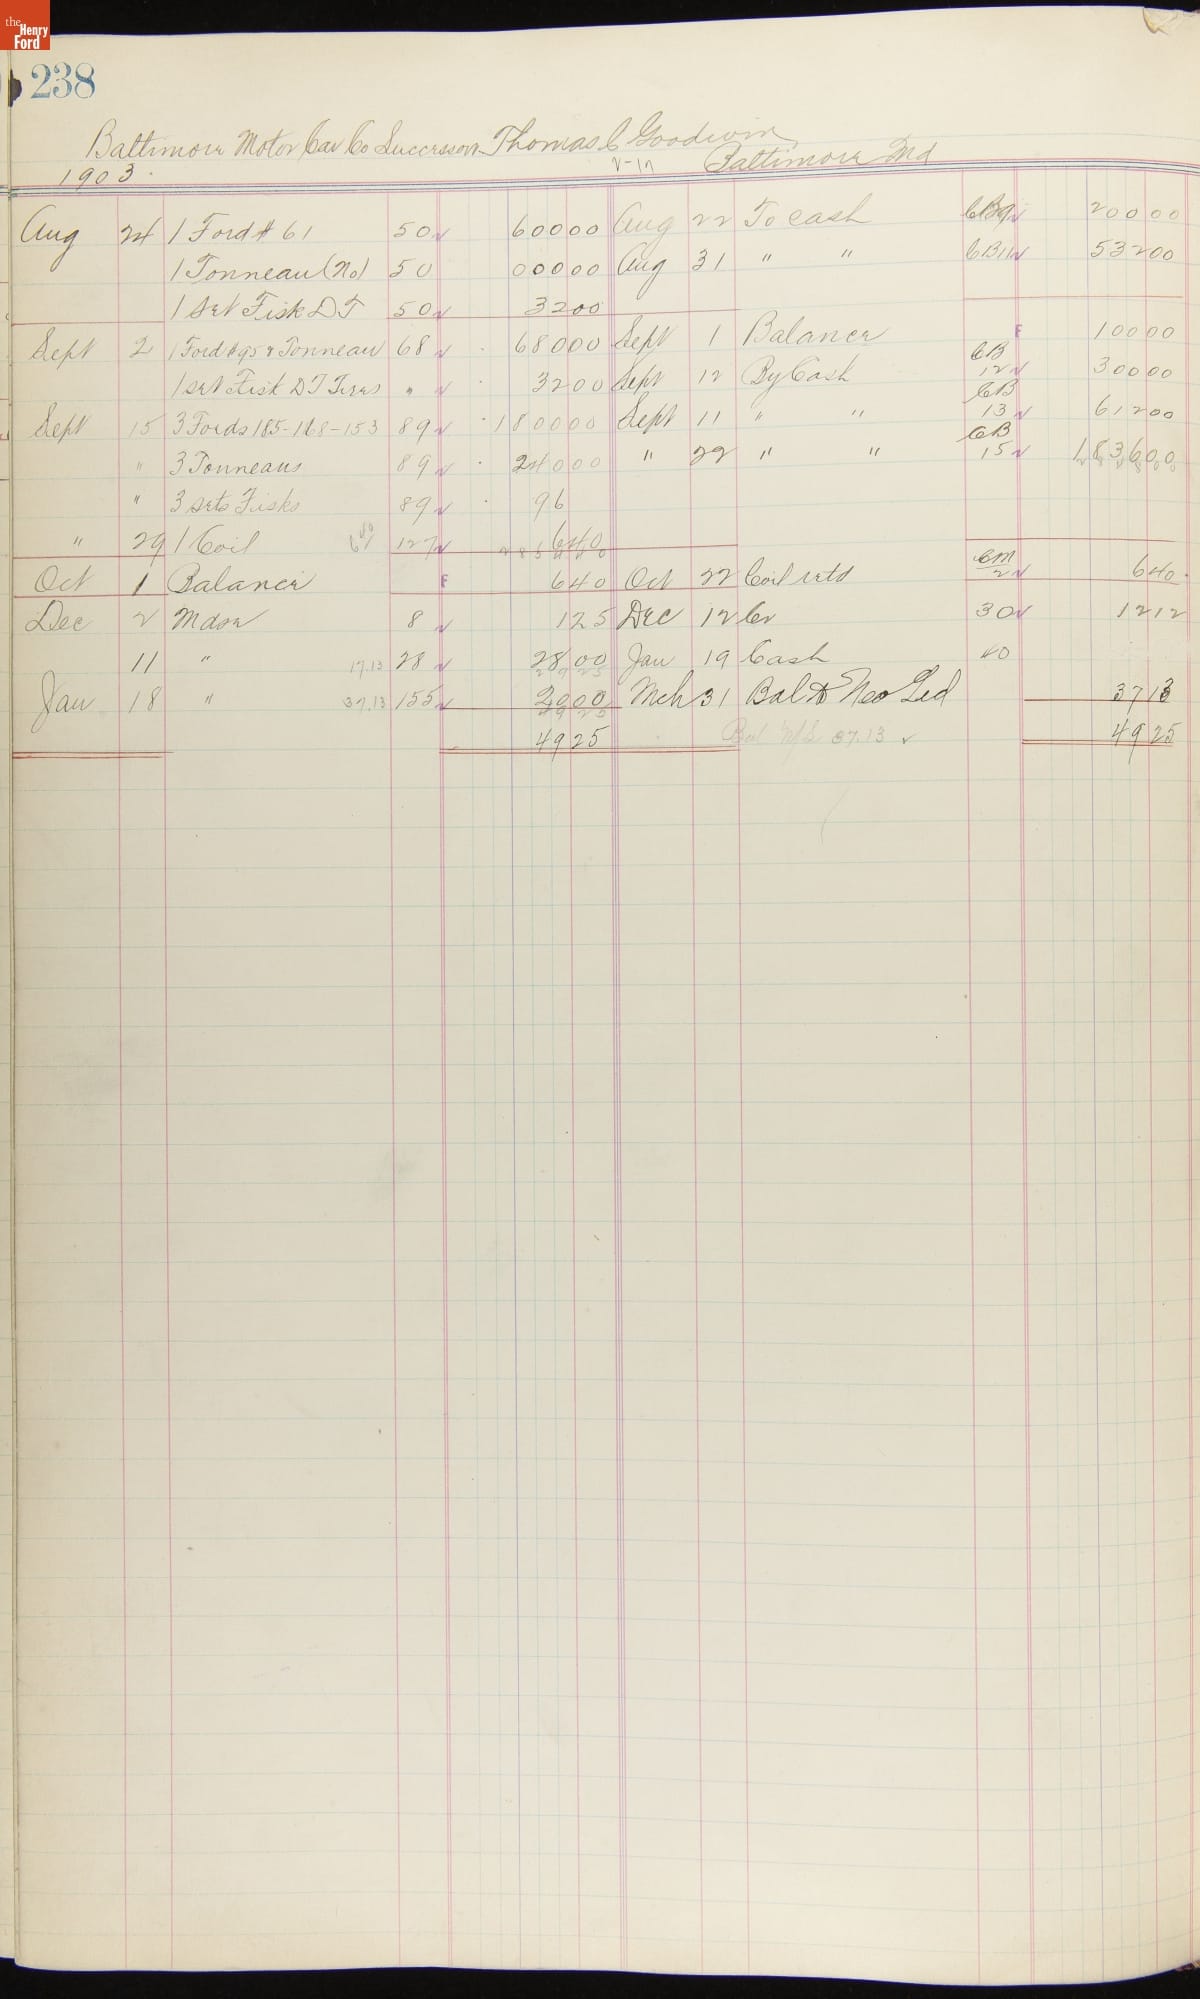 the Henry Ford
238
Baltimore Motor Car Co Successors Thomas C Goodwin
Baltimore Md
1903
Aug 24 1 Ford # 61 50 600 00 Aug 22 To cash CB9 200 00
1 Tonneau (No) 50 000 00 Aug 31 " " CB11 532 00
1 set Fisk D T 50 32 00
Sept 2 1 Ford #95 & Tonneau 68 680 00 Sept 1 Balance F 100 00
1 set Fisk D T Tires " 32 00 Sept 12 By Cash CB 12 300 00
Sept 15 3 Fords 185-168-153 89 1800 00 Sept 11 " " CB 13 612 00
" 3 Tonneaus 89 240 00 " 22 " " CB 15 1836 00
" 3 sets Fisks 89 96
" 29 1 Coil 6 40 127 6 40
Oct 1 Balance F 6 40 Oct 22 Coil retd CM 2 6 40
Dec 2 Mdse 8 1 25 Dec 12 Cr 30 12 12
11 " 17.13 28 28 00 Jan 19 Cash 40
Jan 18 " 37.13 155 20 00 Mch 31 Bal to New Led 37 13
49 25 Bal 37.13 49 25